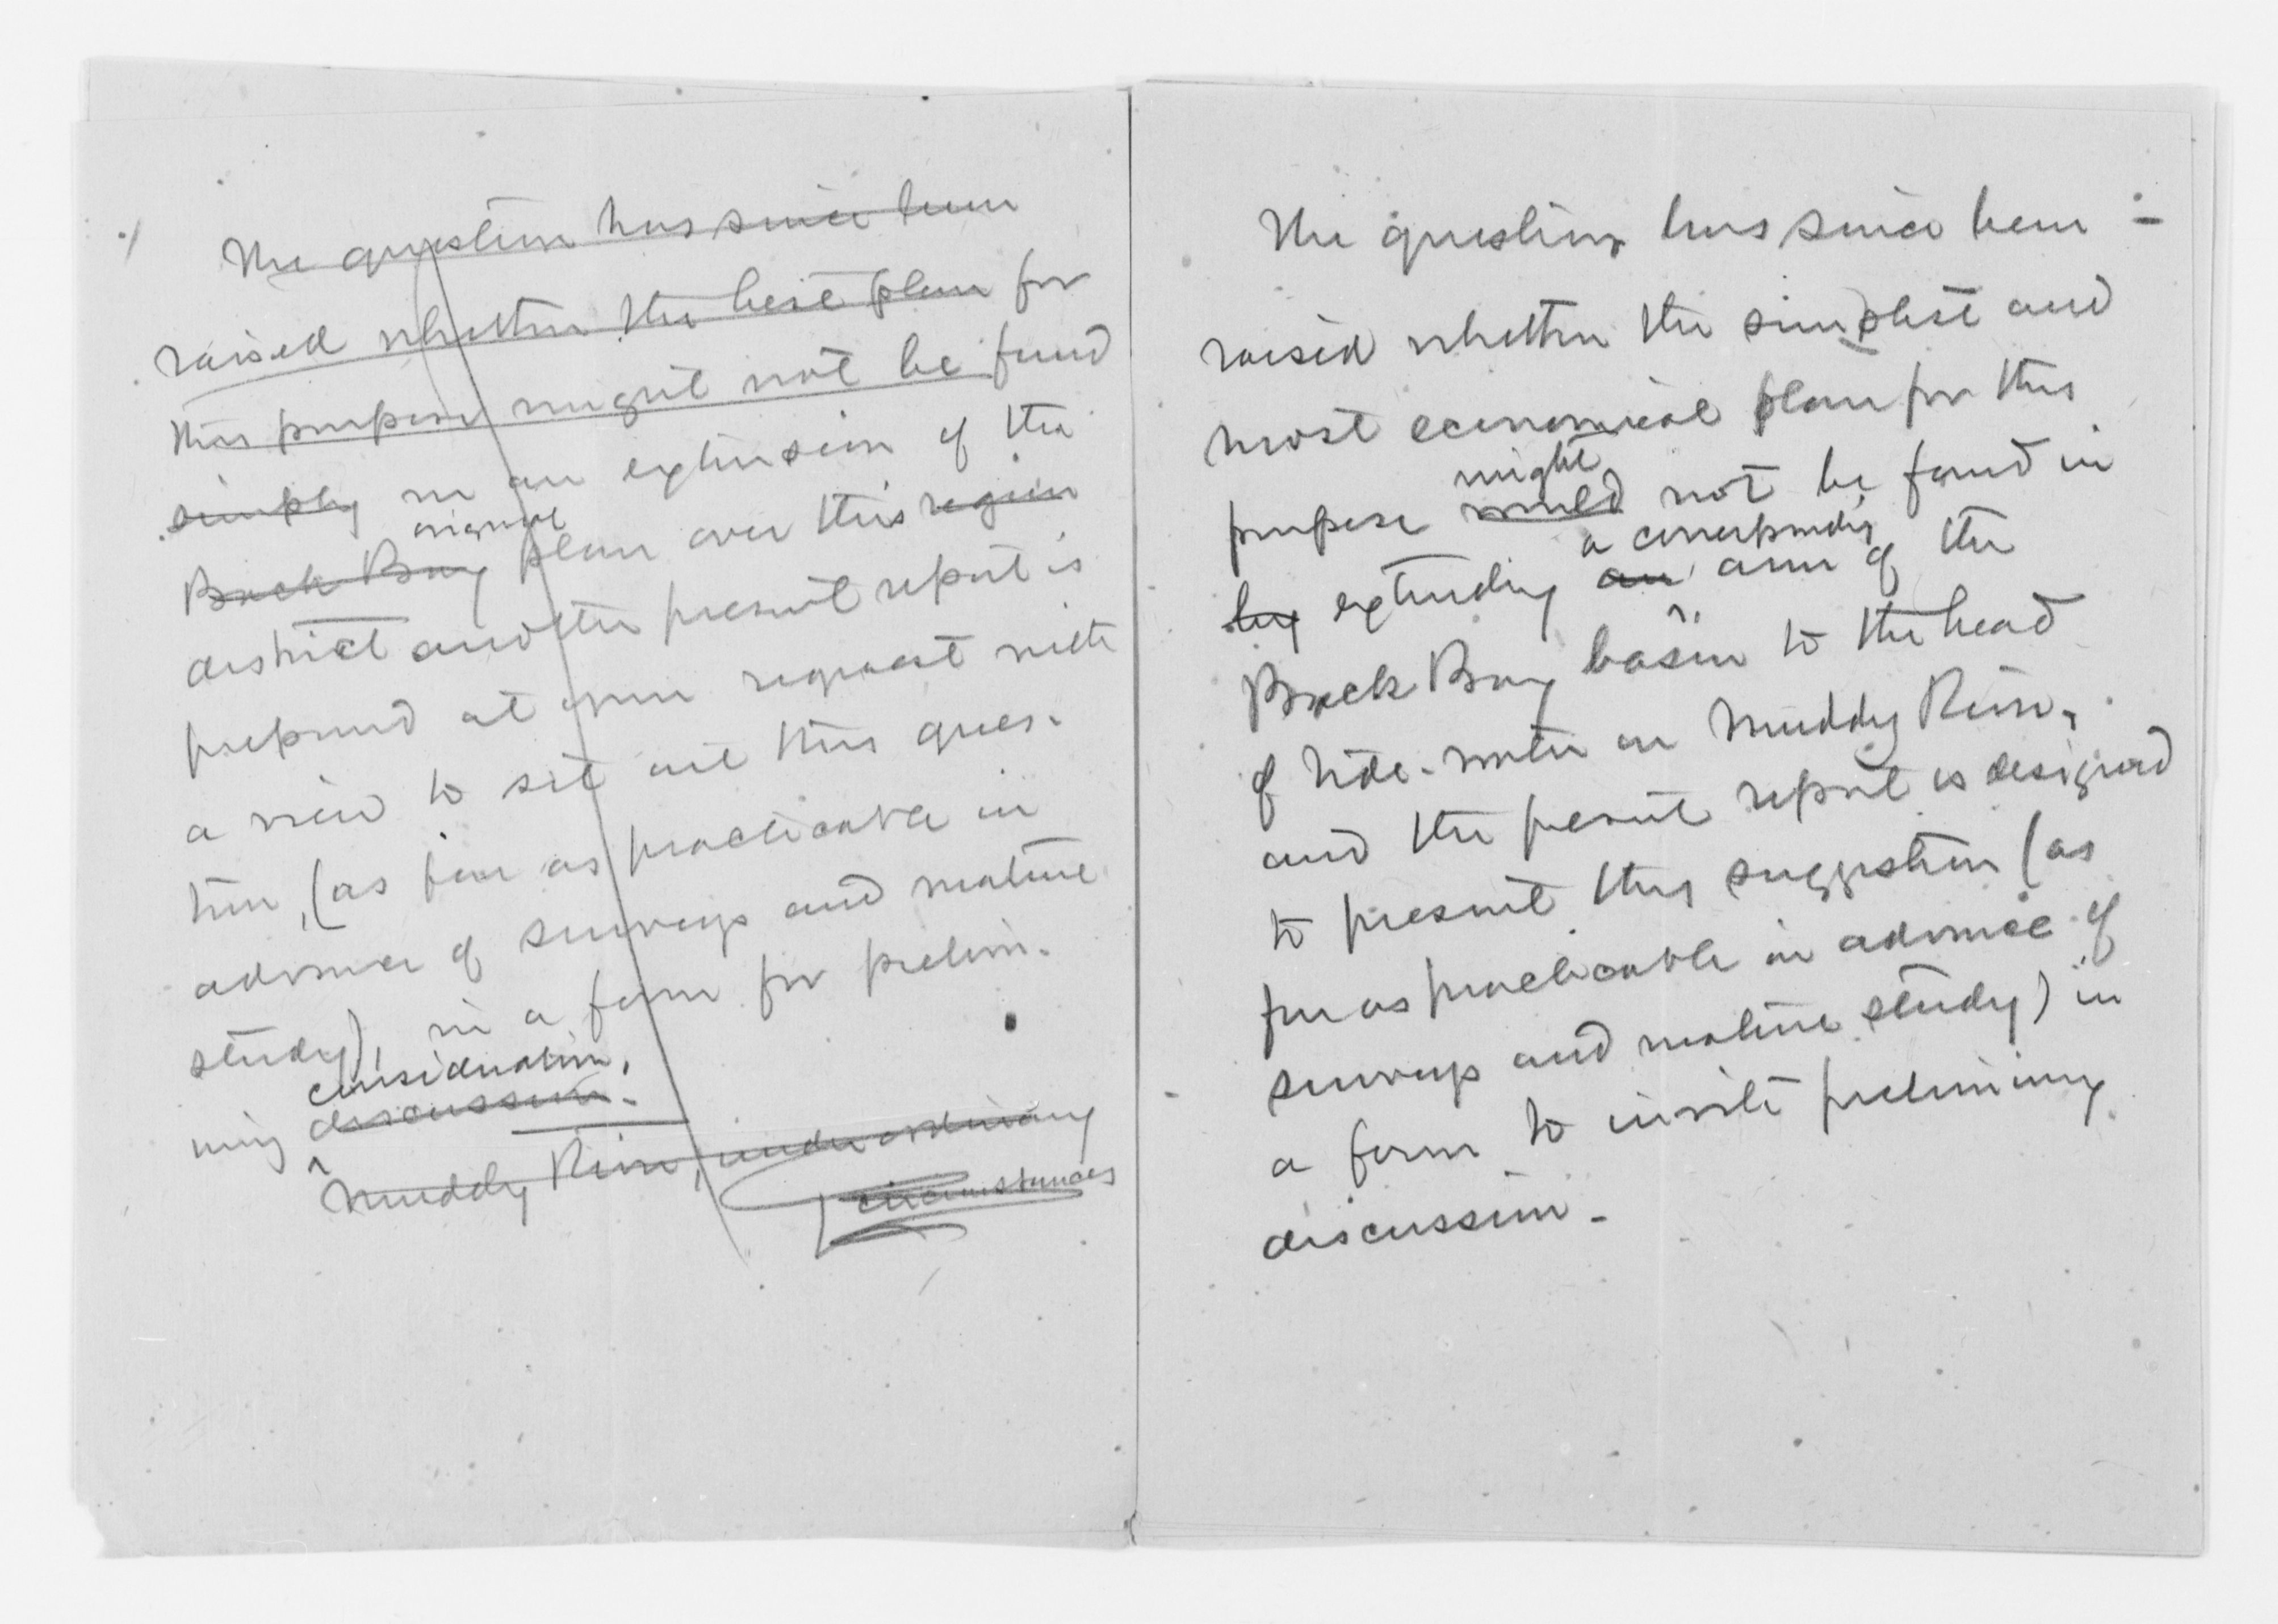 The question has since been
raised whether the best plan for
this purpose might not be found
simply in an extension of the
original
Back Bay plan over this region
district and the present report is
prepared at your request with
a view to set out this ques-
tion, (as far as practicable in
advance of surveys and mature
study), in a form for prelim-
consideration.
inary discussion.
Muddy River, under ordinary
circumstances
The question has since been -
raised whether the simplest and
most economical plan for this
might
purpose would not be found in
a corresponding
by extending an arm of the
Back Bay basin to the head
of tide-water on Muddy River,
and the present report is designed
to present this suggestion (as
far as practicable in advance of
surveys and mature study) in
a form to invite preliminary
discussion -